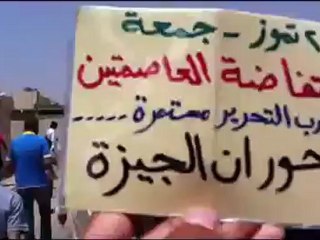 ٢ تموز - جمعة
تفاضة العاصمتين
رب التحرير مستمرة .....
حوران الجيزة